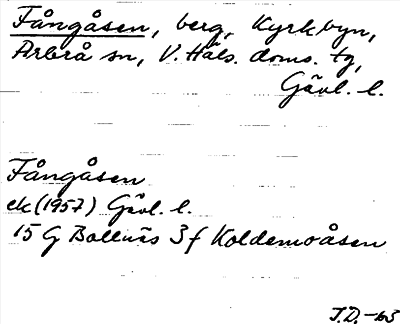 Fångåsen, berg, Kyrkbyn,
Arbrå sn, V. Häls. doms. tg,
Gävl. l.
Fångåsen
ek (1957) Gävl. l.
15 G Bollnäs 3 f Koldemoåsen
J.D. -63